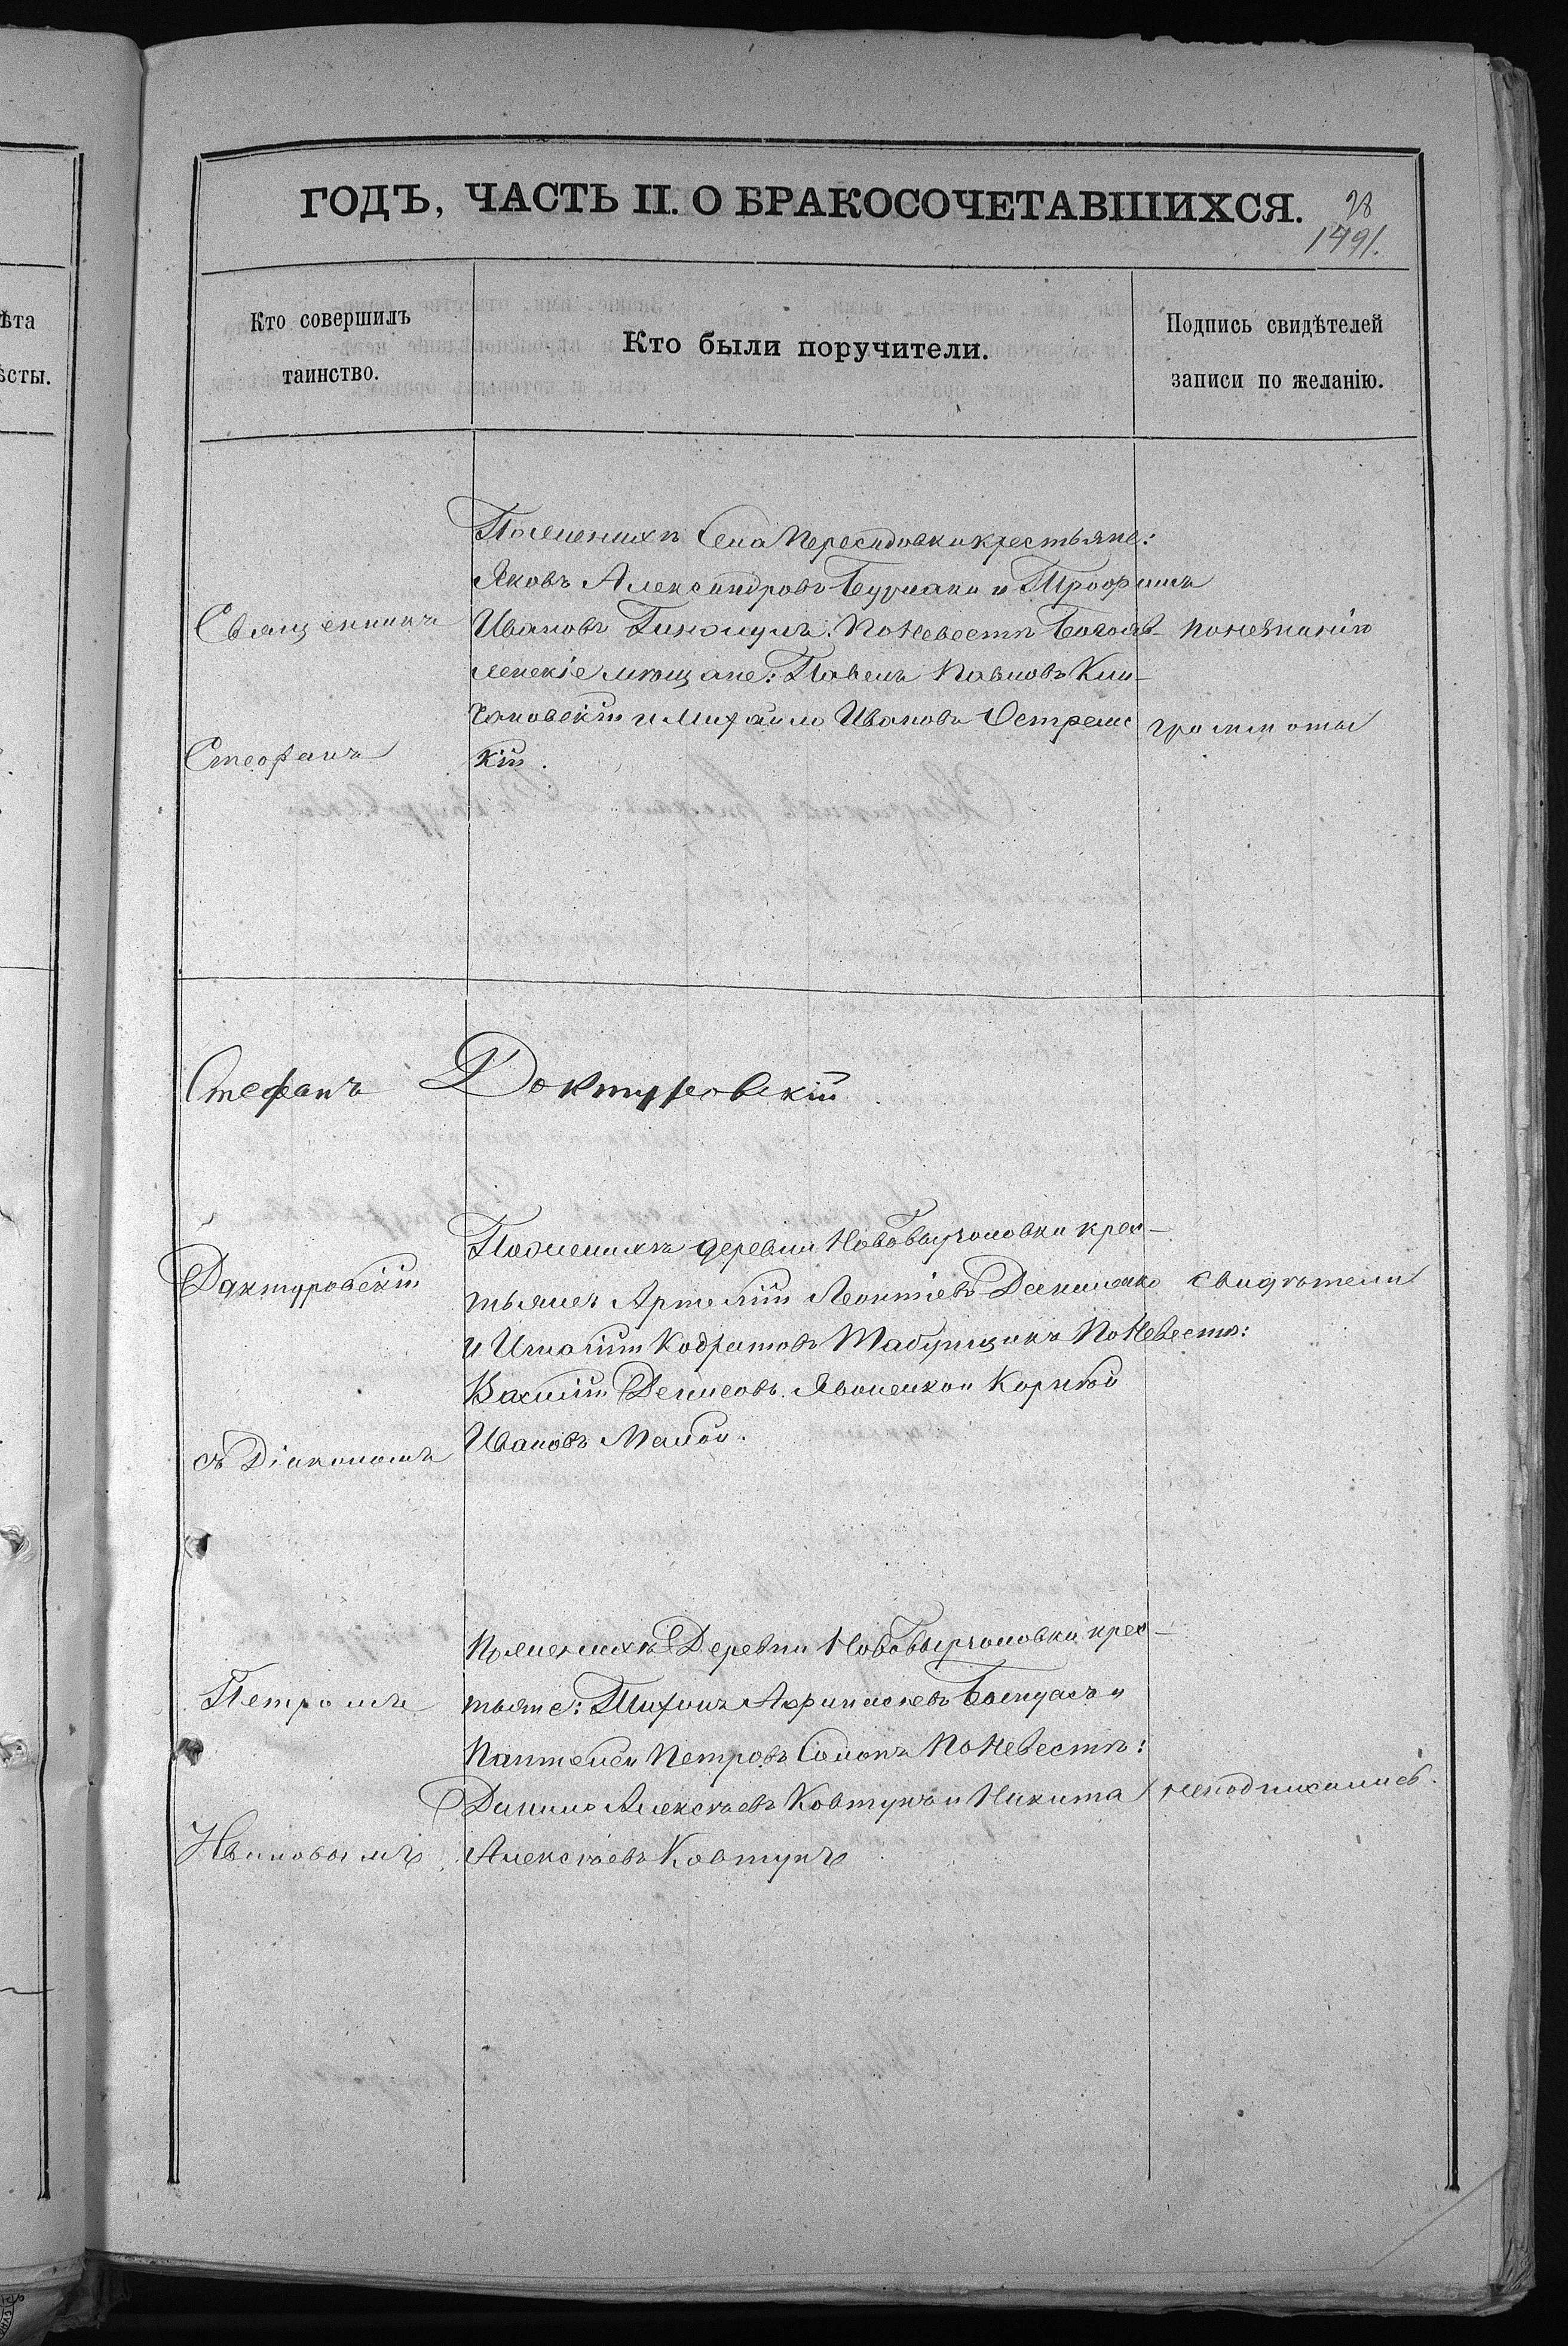 ѣта
ѣсты.
ГОДЪ, ЧАСТЬ II. О БРАКОСОЧЕТАВШИХСЯ.
28
1791.
Кто совершилъ
таинство.
Кто были поручители.
Подпись свидѣтелей
записи по желанію.
Священникъ
Стефанъ
Пожениxѣ Села Пересадовки крестьяне:
Яковъ Александровъ и Трофимъ
Ивановъ По Невестѣ Богояв-
ленскіе мѣщане: Павелъ Павловъ Кли-
чановскій и Михаилъ Ивановъ Острелс
кій.
понезнанію
грамматы
Стефанъ Доктуровскій
Доктуровскій
съ Діакономъ
Поженихѣ деревни Новобырголовки крес-
тьяне Артемій Леонтіевъ
и Игнатій Кодратовъ Табунщикъ По Невестѣ:
Василій Денисовъ и Корнѣй
Ивановъ Малой.
свидѣтели
Петромъ
Ивановымъ
Поженихѣ Деревни Новобырголовки крес-
тьяне: Тихонъ Афанасіевъ и
Пантелей Петровъ По Невестѣ:
Данило Алексѣевъ Ковтунъ и Никита
Алексѣевъ Ковтунъ
неподписались.